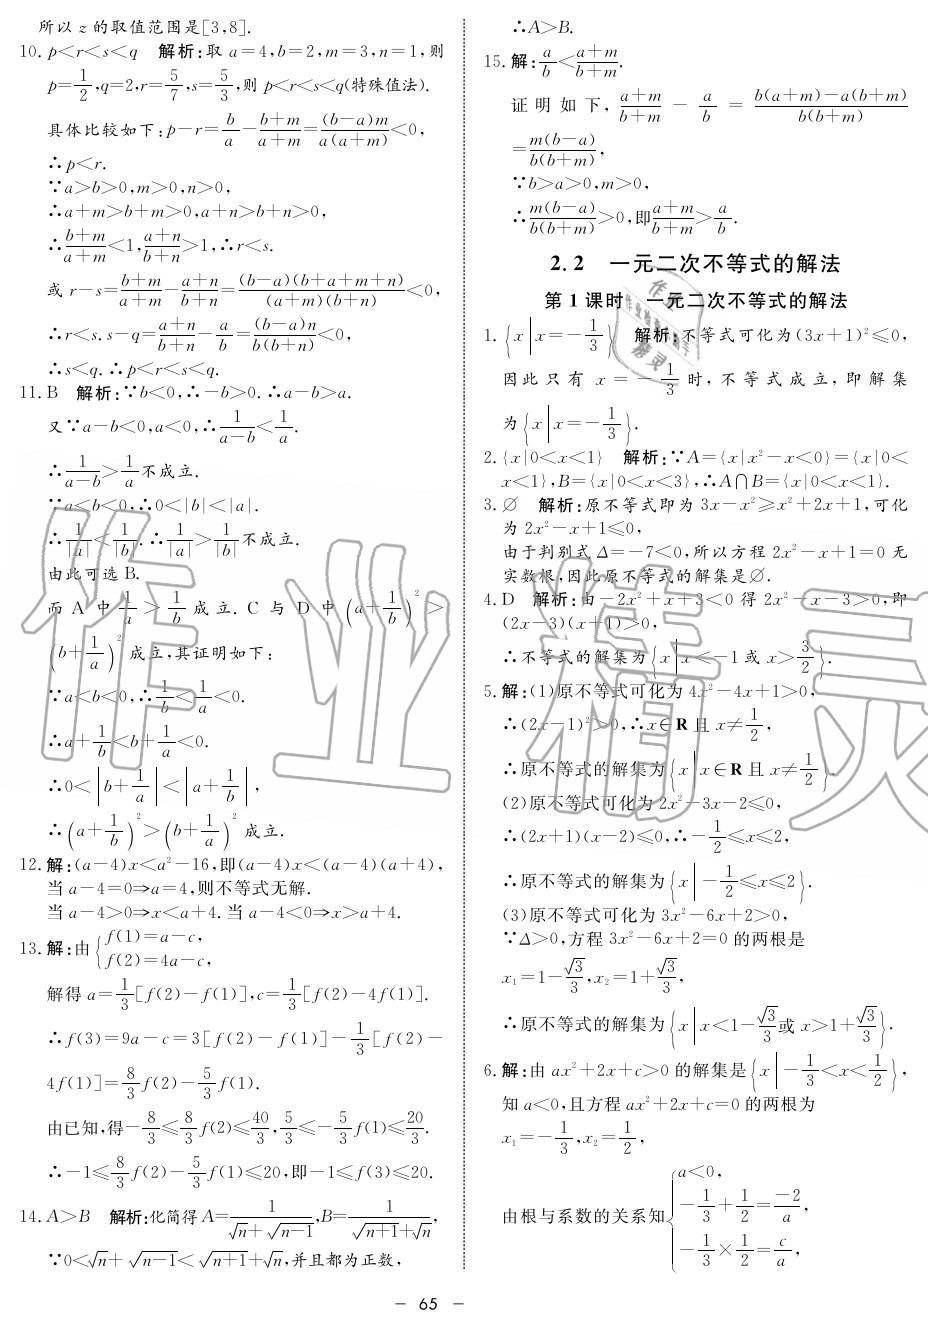 所以 z 的取值范围是[3,8].
10. p<r<s<q 解析:取 a=4,b=2,m=3,n=1,则
p=1/2,q=2,r=5/7,s=5/3,则 p<r<s<q(特殊值法).
具体比较如下:p-r=b/a-(b+m)/(a+m)=(b-a)m/a(a+m)<0,
∴p<r.
∵a>b>0,m>0,n>0,
∴a+m>b+m>0,a+n>b+n>0,
∴(b+m)/(a+m)<1,(a+n)/(b+n)>1,∴r<s.
或 r-s=(b+m)/(a+m)-(a+n)/(b+n)=(b-a)(b+a+m+n)/(a+m)(b+n)<0,
∴r<s. s-q=(a+n)/(b+n)-a/b=(b-a)n/b(b+n)<0,
∴s<q. ∴p<r<s<q.
11. B 解析:∵b<0,∴-b>0. ∴a-b>a.
又∵a-b<0,a<0,∴1/(a-b)<1/a.
∴1/(a-b)>1/a不成立.
∵a<b<0,∴0<|b|<|a|.
∴1/|a|<1/|b|. ∴1/|a|>1/|b|不成立.
由此可选 B.
而 A 中 1/a>1/b 成立. C 与 D 中 (a+1/b)²>
(b+1/a)² 成立,其证明如下:
∵a<b<0,∴1/b<1/a<0.
∴a+1/b<b+1/a<0.
∴0<|b+1/a|<|a+1/b|,
∴(a+1/b)²>(b+1/a)² 成立.
12. 解:(a-4)x<a²-16,即(a-4)x<(a-4)(a+4),
当 a-4=0⇒a=4,则不等式无解.
当 a-4>0⇒x<a+4. 当 a-4<0⇒x>a+4.
13. 解:由{f(1)=a-c,
f(2)=4a-c,
解得 a=1/3[f(2)-f(1)],c=1/3[f(2)-4f(1)].
∴f(3)=9a-c=3[f(2)-f(1)]-1/3[f(2)-
4f(1)]=8/3f(2)-5/3f(1).
由已知,得-8/3≤8/3f(2)≤40/3,5/3≤-5/3f(1)≤20/3.
∴-1≤8/3f(2)-5/3f(1)≤20,即-1≤f(3)≤20.
14. A>B 解析:化简得 A=1/(√n+√n-1),B=1/(√n+1+√n),
∵0<√n+√n-1<√n+1+√n,并且都为正数,
∴A>B.
15. 解:a/b<(a+m)/(b+m).
证明如下,(a+m)/(b+m)-a/b=[b(a+m)-a(b+m)]/b(b+m)
=m(b-a)/b(b+m),
∵b>a>0,m>0,
∴m(b-a)/b(b+m)>0,即(a+m)/(b+m)>a/b.
2.2 一元二次不等式的解法
第 1 课时 一元二次不等式的解法
1. {x|x=-1/3} 解析:不等式可化为(3x+1)²≤0,
因此只有 x=-1/3 时,不等式成立,即解集
为{x|x=-1/3}.
2. {x|0<x<1} 解析:∵A={x|x²-x<0}={x|0<
x<1},B={x|0<x<3},∴A∩B={x|0<x<1}.
3. ∅ 解析:原不等式即为 3x-x²≥x²+2x+1,可化
为 2x²-x+1≤0,
由于判别式 Δ=-7<0,所以方程 2x²-x+1=0 无
实数根,因此原不等式的解集是∅.
4. D 解析:由-2x²+x+3<0 得 2x²-x-3>0,即
(2x-3)(x+1)>0,
∴不等式的解集为{x|x<-1 或 x>3/2}.
5. 解:(1)原不等式可化为 4x²-4x+1>0,
∴(2x-1)²>0,∴x∈R 且 x≠1/2,
∴原不等式的解集为{x|x∈R 且 x≠1/2}.
(2)原不等式可化为 2x²-3x-2≤0,
∴(2x+1)(x-2)≤0,∴-1/2≤x≤2,
∴原不等式的解集为{x|-1/2≤x≤2}.
(3)原不等式可化为 3x²-6x+2>0,
∵Δ>0,方程 3x²-6x+2=0 的两根是
x₁=1-√3/3,x₂=1+√3/3,
∴原不等式的解集为{x|x<1-√3/3或 x>1+√3/3}.
6. 解:由 ax²+2x+c>0 的解集是{x|-1/3<x<1/2},
知 a<0,且方程 ax²+2x+c=0 的两根为
x₁=-1/3,x₂=1/2,
由根与系数的关系知{a<0,
-1/3+1/2=-2/a,
-1/3×1/2=c/a,
- 65 -
作业精灵